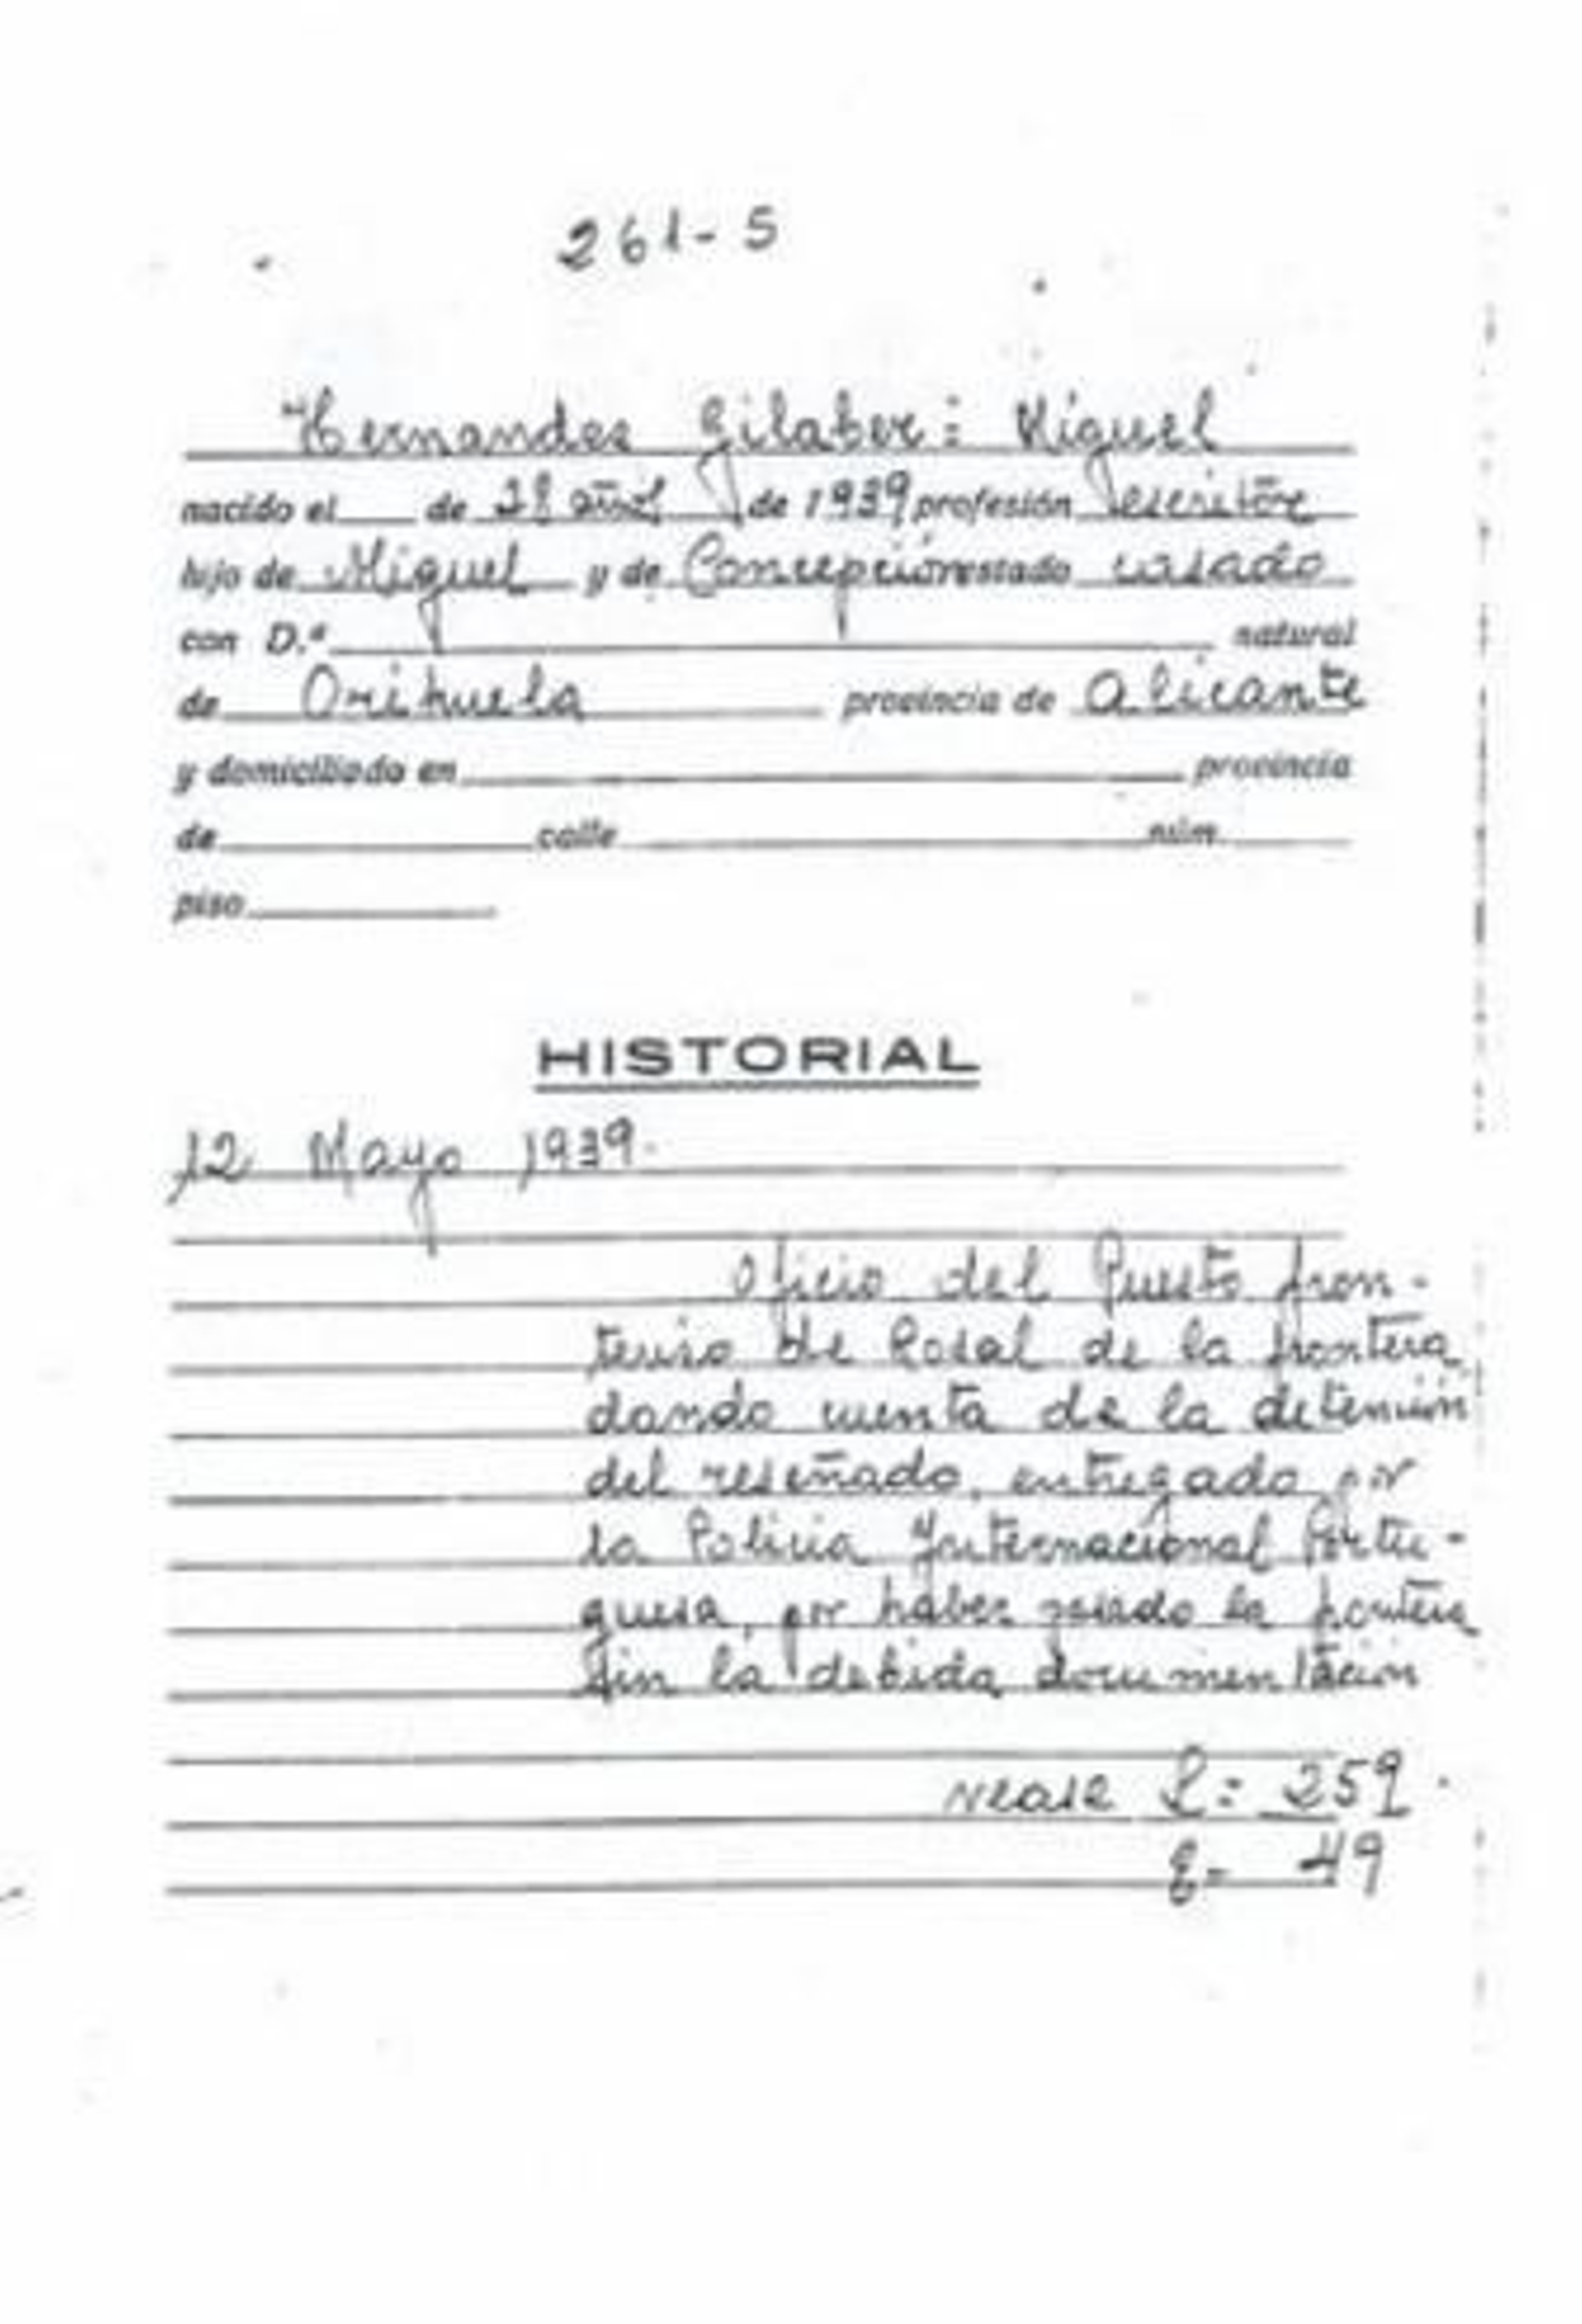 261-5
Hernandez Gilaber: Miguel
nacido el de 28 años de 1939 profesión escritor
hijo de Miguel y de Concepción estado casado
con D.ª natural
de Orihuela provincia de Alicante
y domiciliado en provincia
de calle núm.
piso
HISTORIAL
12 Mayo 1939.
Oficio del Puesto fron-
terizo de Rosal de la frontera
dando cuenta de la detención
del reseñado, entregado por
la Policia Internacional Portu-
guesa, por haber pasado la frontera
sin la debida documentación
vease L= 259.
E= 49